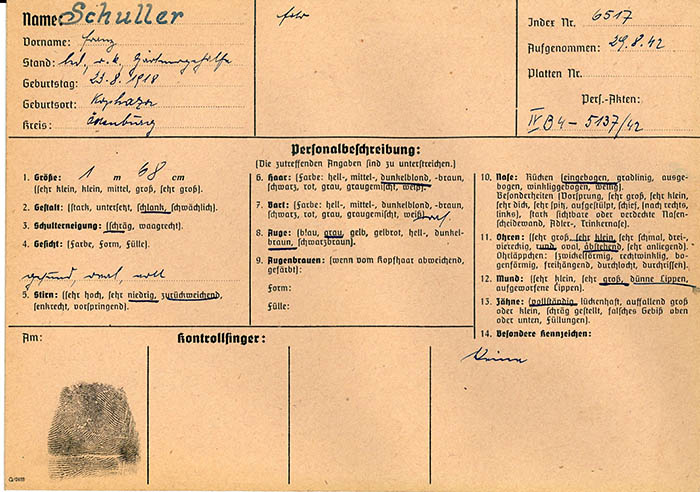 Name: Schuller
Vorname: Franz
Stand: led., r. k., Gärtnergehilfe
Geburtstag: 23.8.1918
Geburtsort:
Kreis: Ödenburg
Index Nr. 6517
Aufgenommen: 29.8.42
Platten Nr.
Pers.-Akten:
IV B 4 - 5137/42
Personalbeschreibung:
(Die zutreffenden Angaben sind zu unterstreichen.)
1. Größe: 1 m 68 cm
(sehr klein, klein, mittel, groß, sehr groß).
2. Gestalt: (stark, untersetzt, schlank, schwächlich).
3. Schulterneigung: (schräg, waagrecht).
4. Gesicht: (Farbe, Form, Fülle).
gesund, oval, voll
5. Stirn: (sehr hoch, sehr niedrig, zurückweichend,
senkrecht, vorspringend).
6. Haar: (Farbe: hell-, mittel-, dunkelblond, -braun,
schwarz, rot, grau, graugemischt, weiß)
7. Bart: (Farbe: hell-, mittel-, dunkelblond, -braun,
schwarz, rot, grau, graugemischt, weiß)
8. Auge: (blau, grau, gelb, gelbrot, hell-, dunkel-
braun, schwarzbraun).
9. Augenbrauen: (wenn vom Kopfhaar abweichend,
gefärbt):
Form:
Fülle:
10. Nase: Rücken (eingebogen, gradlinig, ausge-
bogen, winkliggebogen, wellig).
Besonderheiten (Vorsprung, sehr groß, sehr klein,
sehr dick, sehr spitz, aufgestülpt, schief, (nach rechts,
links), stark sichtbare oder verdeckte Nasen-
scheidewand, Adler-, Trinkernase).
11. Ohren: (sehr groß, sehr klein, sehr schmal, drei-,
viereckig, rund, oval, abstehend, sehr anliegend).
Ohrläppchen: (zwickelförmig, rechtwinklig, bo-
genförmig, freihängend, durchlocht, durchrissen).
12. Mund: (sehr klein, sehr groß, dünne Lippen,
aufgeworfene Lippen).
13. Zähne: (vollständig, lückenhaft, auffallend groß
oder klein, schräg gestellt, falsches Gebiß oben
oder unten, Füllungen).
14. Besondere Kennzeichen:
Keine
Am:
Kontrollfinger: